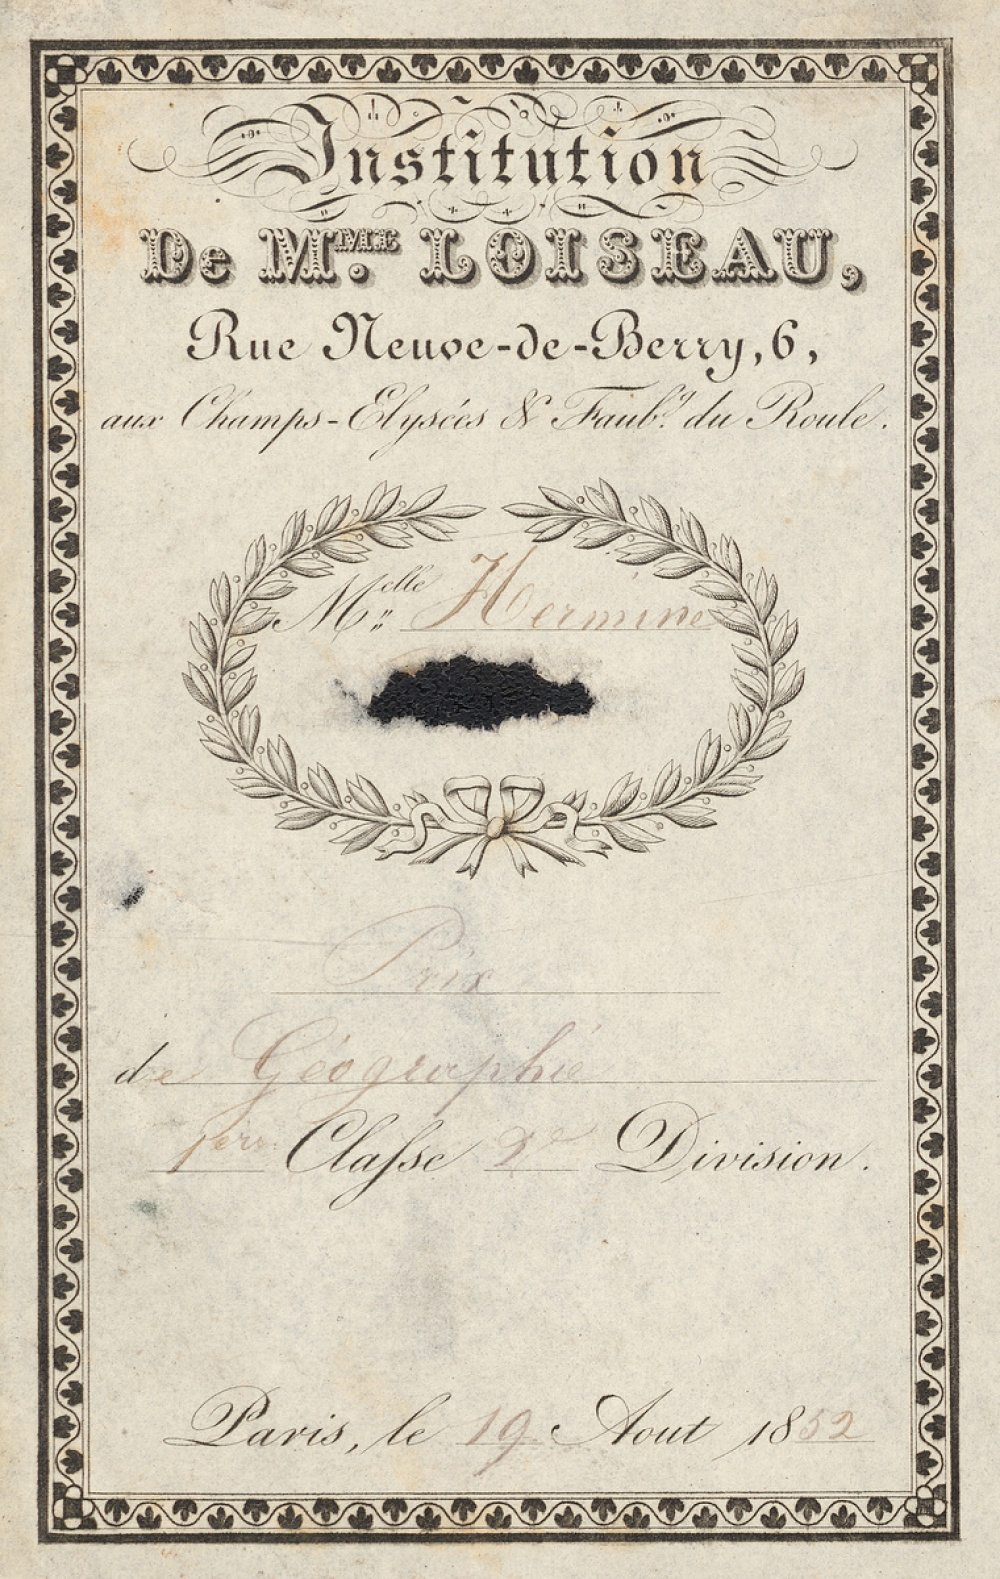 Institution
De Mme. LOISEAU,
Rue Neuve-de-Berry, 6,
aux Champs-Elysées & Faubg. du Roule.
Melle Hermine
Prix
de Géographie
1ère Classe 2e Division.
Paris, le 19 Aout 1852